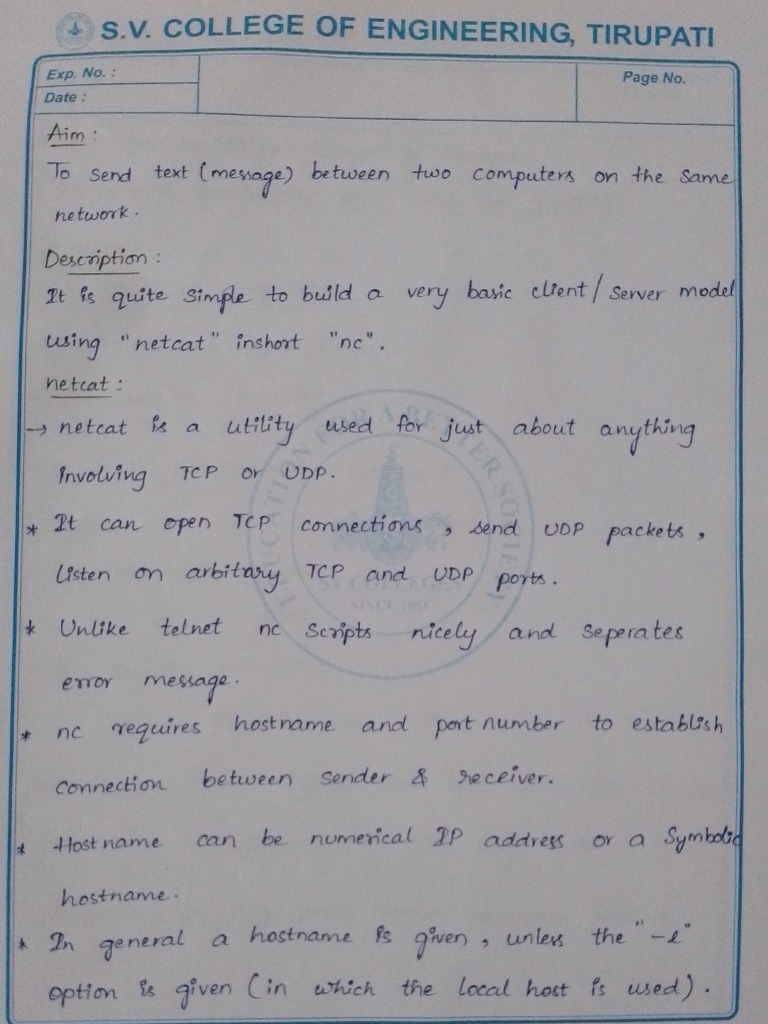 S.V. COLLEGE OF ENGINEERING, TIRUPATI
Exp. No. :
Page No.
Date :
Aim :
To send text (message) between two computers on the same
network.
Description :
It is quite simple to build a very basic client / server model
using "netcat" inshort "nc".
netcat :
→ netcat is a utility used for just about anything
involving TCP or UDP.
* It can open TCP connections, send UDP packets,
listen on arbitary TCP and UDP ports.
* Unlike telnet nc scripts nicely and seperates
error message.
* nc requires hostname and port number to establish
connection between sender & receiver.
* Host name can be numerical IP address or a symbolic
hostname.
* In general a hostname is given, unless the "-l"
option is given (in which the local host is used).
EDUCATION FOR A BETTER SOCIETY
SV COLLEGES
SINCE 1981